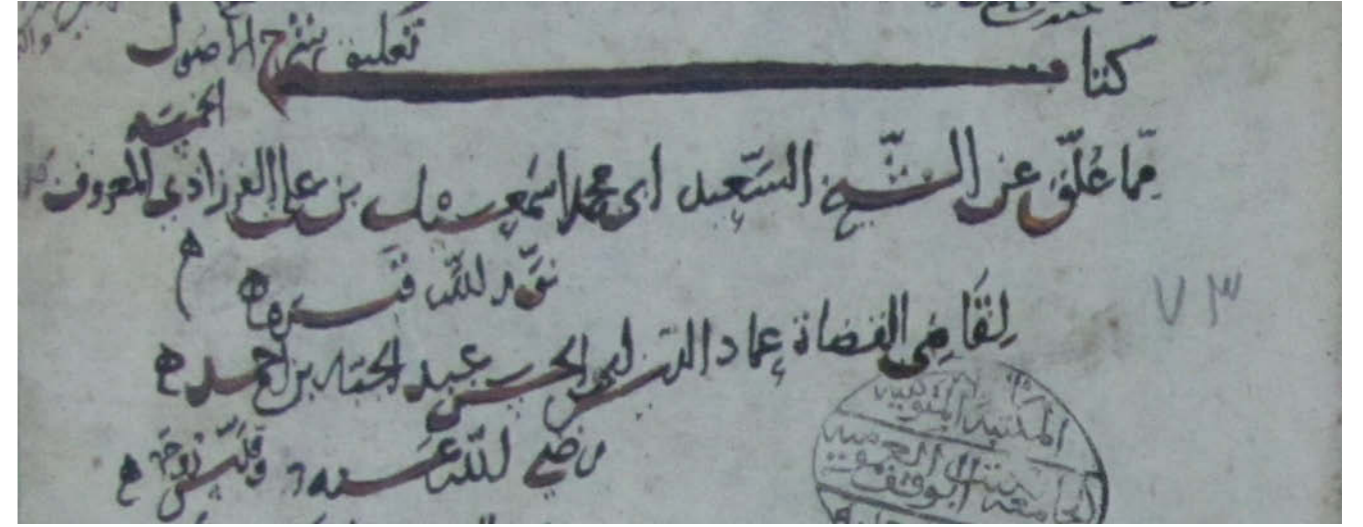 كتاب تعليق شرح الأصول
الخمسة
مما علق عن الشيخ السعيد ابي محمد اسمعيل بن علي الفرزاذي المعروف
نور الله قبره
لقاضي القضاة عماد الدين ابي الحسن عبد الجبار بن احمد
رضي الله عنه وقدس روحه
٧٣
المكتبة المتوكلية
الجامعة